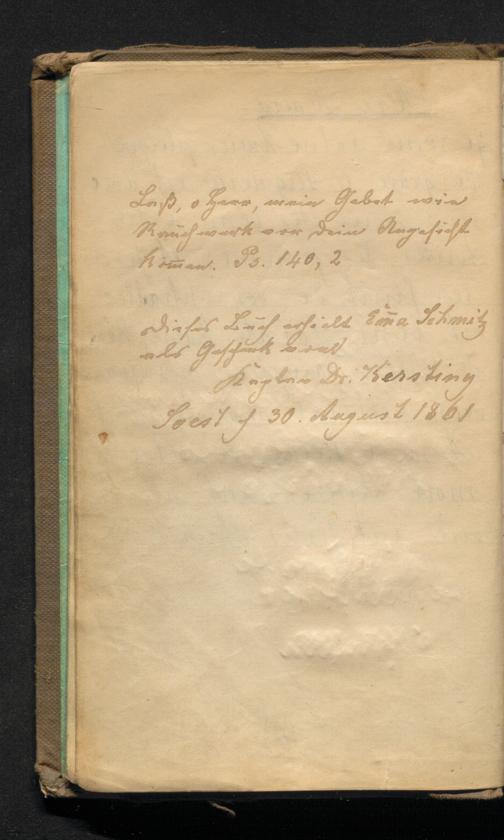 Laß, o Herr, mein Gebet wie
Rauchwerk vor dein Angesicht
kom̄en. Ps. 140, 2
Dieses Buch erhielt Em̄a Schmitz
als Geschenk von
Kaplan Dr. Kersting
Soest 30. August 1861